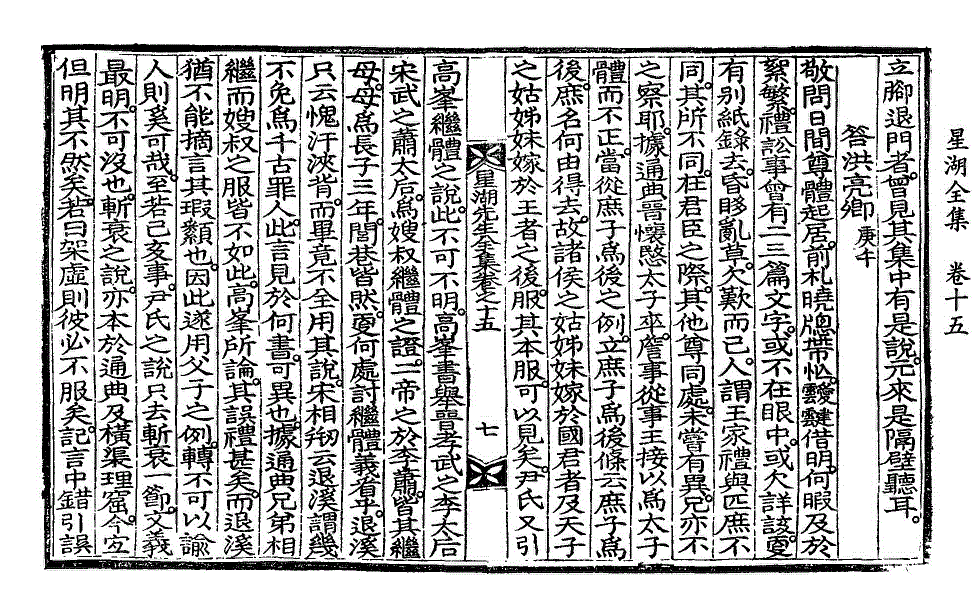 星湖全集　卷十五
立腳退門者。曾見其集中有是說。元來是隔壁聽耳。
答洪亮卿 庚午
敬問日間尊體起居。前札曉牕帶悩。靉靆借明。何暇及於
絮繁。禮訟事曾有二三篇文字。或不在眼中。或欠詳該。更
有別紙錄去。昏眵亂草。欠歎而已。人謂王家禮與匹庶不
同。其所不同。在君臣之際。其他尊同處。未嘗有異。兄亦不
之察耶。據通典晉懷愍太子卒。詹事從事王接以爲太子
體而不正。當從庶子爲後之例。立庶子爲後條云庶子爲
後。庶名何由得去。故諸侯之姑姊妹嫁於國君者及天子
之姑姊妹嫁於王者之後。服其本服。可以見矣。尹氏又引
星湖先生全集卷之十五
七
高峯繼體之說。此不可不明。高峯書擧晉孝武之李太后
宋武之蕭太后。爲嫂叔繼體之證。二帝之於李蕭。皆其繼
母。母爲長子三年。閭巷皆然。更何處討繼體義看乎。退溪
只云愧汗浹背。而畢竟不全用其說。宋相刱云退溪謂幾
不免爲千古罪人。此言見於何書。可異也。據通典兄弟相
繼而嫂叔之服皆不如此。高峯所論。其誤禮甚矣。而退溪
猶不能摘言其瑕纇也。因此遂用父子之例。轉不可以諭
人則奚可哉。至若己亥事。尹氏之說只去斬衰一節。文義
最明。不可沒也。斬衰之說。亦本於通典及橫渠理窟。今宜
但明其不然矣。若曰架虛則彼必不服矣。記言中錯引誤